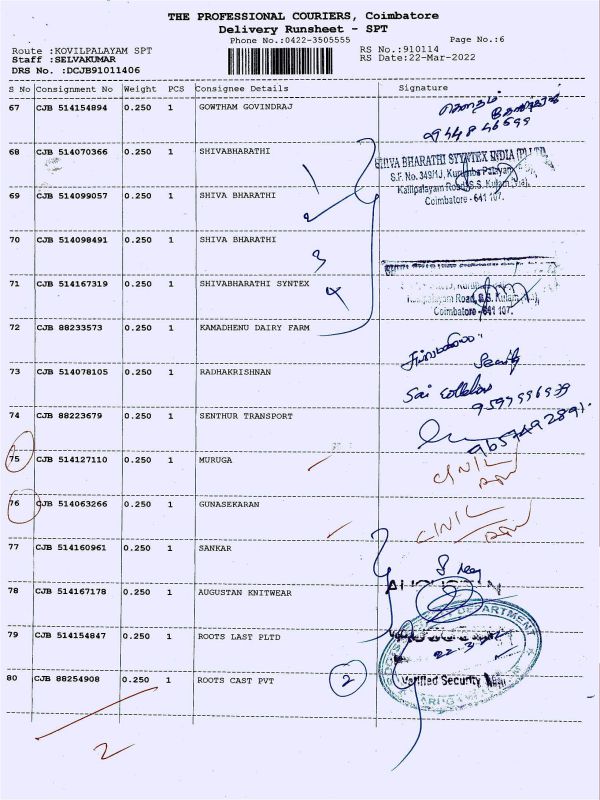 THE PROFESSIONAL COURIERS, Coimbatore
Delivery Runsheet - SPT
Phone No.:0422-3505555 Page No.:6
Route :KOVILPALAYAM SPT RS No.:910114
Staff :SELVAKUMAR RS Date:22-Mar-2022
DRS No. :DCJB91011406
S No Consignment No Weight PCS Consignee Details Signature
67 CJB 514154894 0.250 1 GOWTHAM GOVINDRAJ
68 CJB 514070366 0.250 1 SHIVABHARATHI
SHIVA BHARATHI SYYNTEX INDIA (P) LTD
S.F. No. 349/1J, Kurumba Palayam
Kallipalayam Road, S.S. Kulam
Coimbatore - 641 107.
1
69 CJB 514099057 0.250 1 SHIVA BHARATHI
2
70 CJB 514098491 0.250 1 SHIVA BHARATHI
3
71 CJB 514167319 0.250 1 SHIVABHARATHI SYNTEX
4
Road, S.S. Kulam
Coimbatore - 641 107.
72 CJB 88233573 0.250 1 KAMADHENU DAIRY FARM
Security
73 CJB 514078105 0.250 1 RADHAKRISHNAN
Sai
74 CJB 88223679 0.250 1 SENTHUR TRANSPORT
9657492891
75 CJB 514127110 0.250 1 MURUGA
CINIL
76 CJB 514063266 0.250 1 GUNASEKARAN
CINIL
77 CJB 514160961 0.250 1 SANKAR
78 CJB 514167178 0.250 1 AUGUSTAN KNITWEAR
79 CJB 514154847 0.250 1 ROOTS LAST PLTD
DEPARTMENT
22-3-22
80 CJB 88254908 0.250 1 ROOTS CAST PVT 2
Verified Security
2